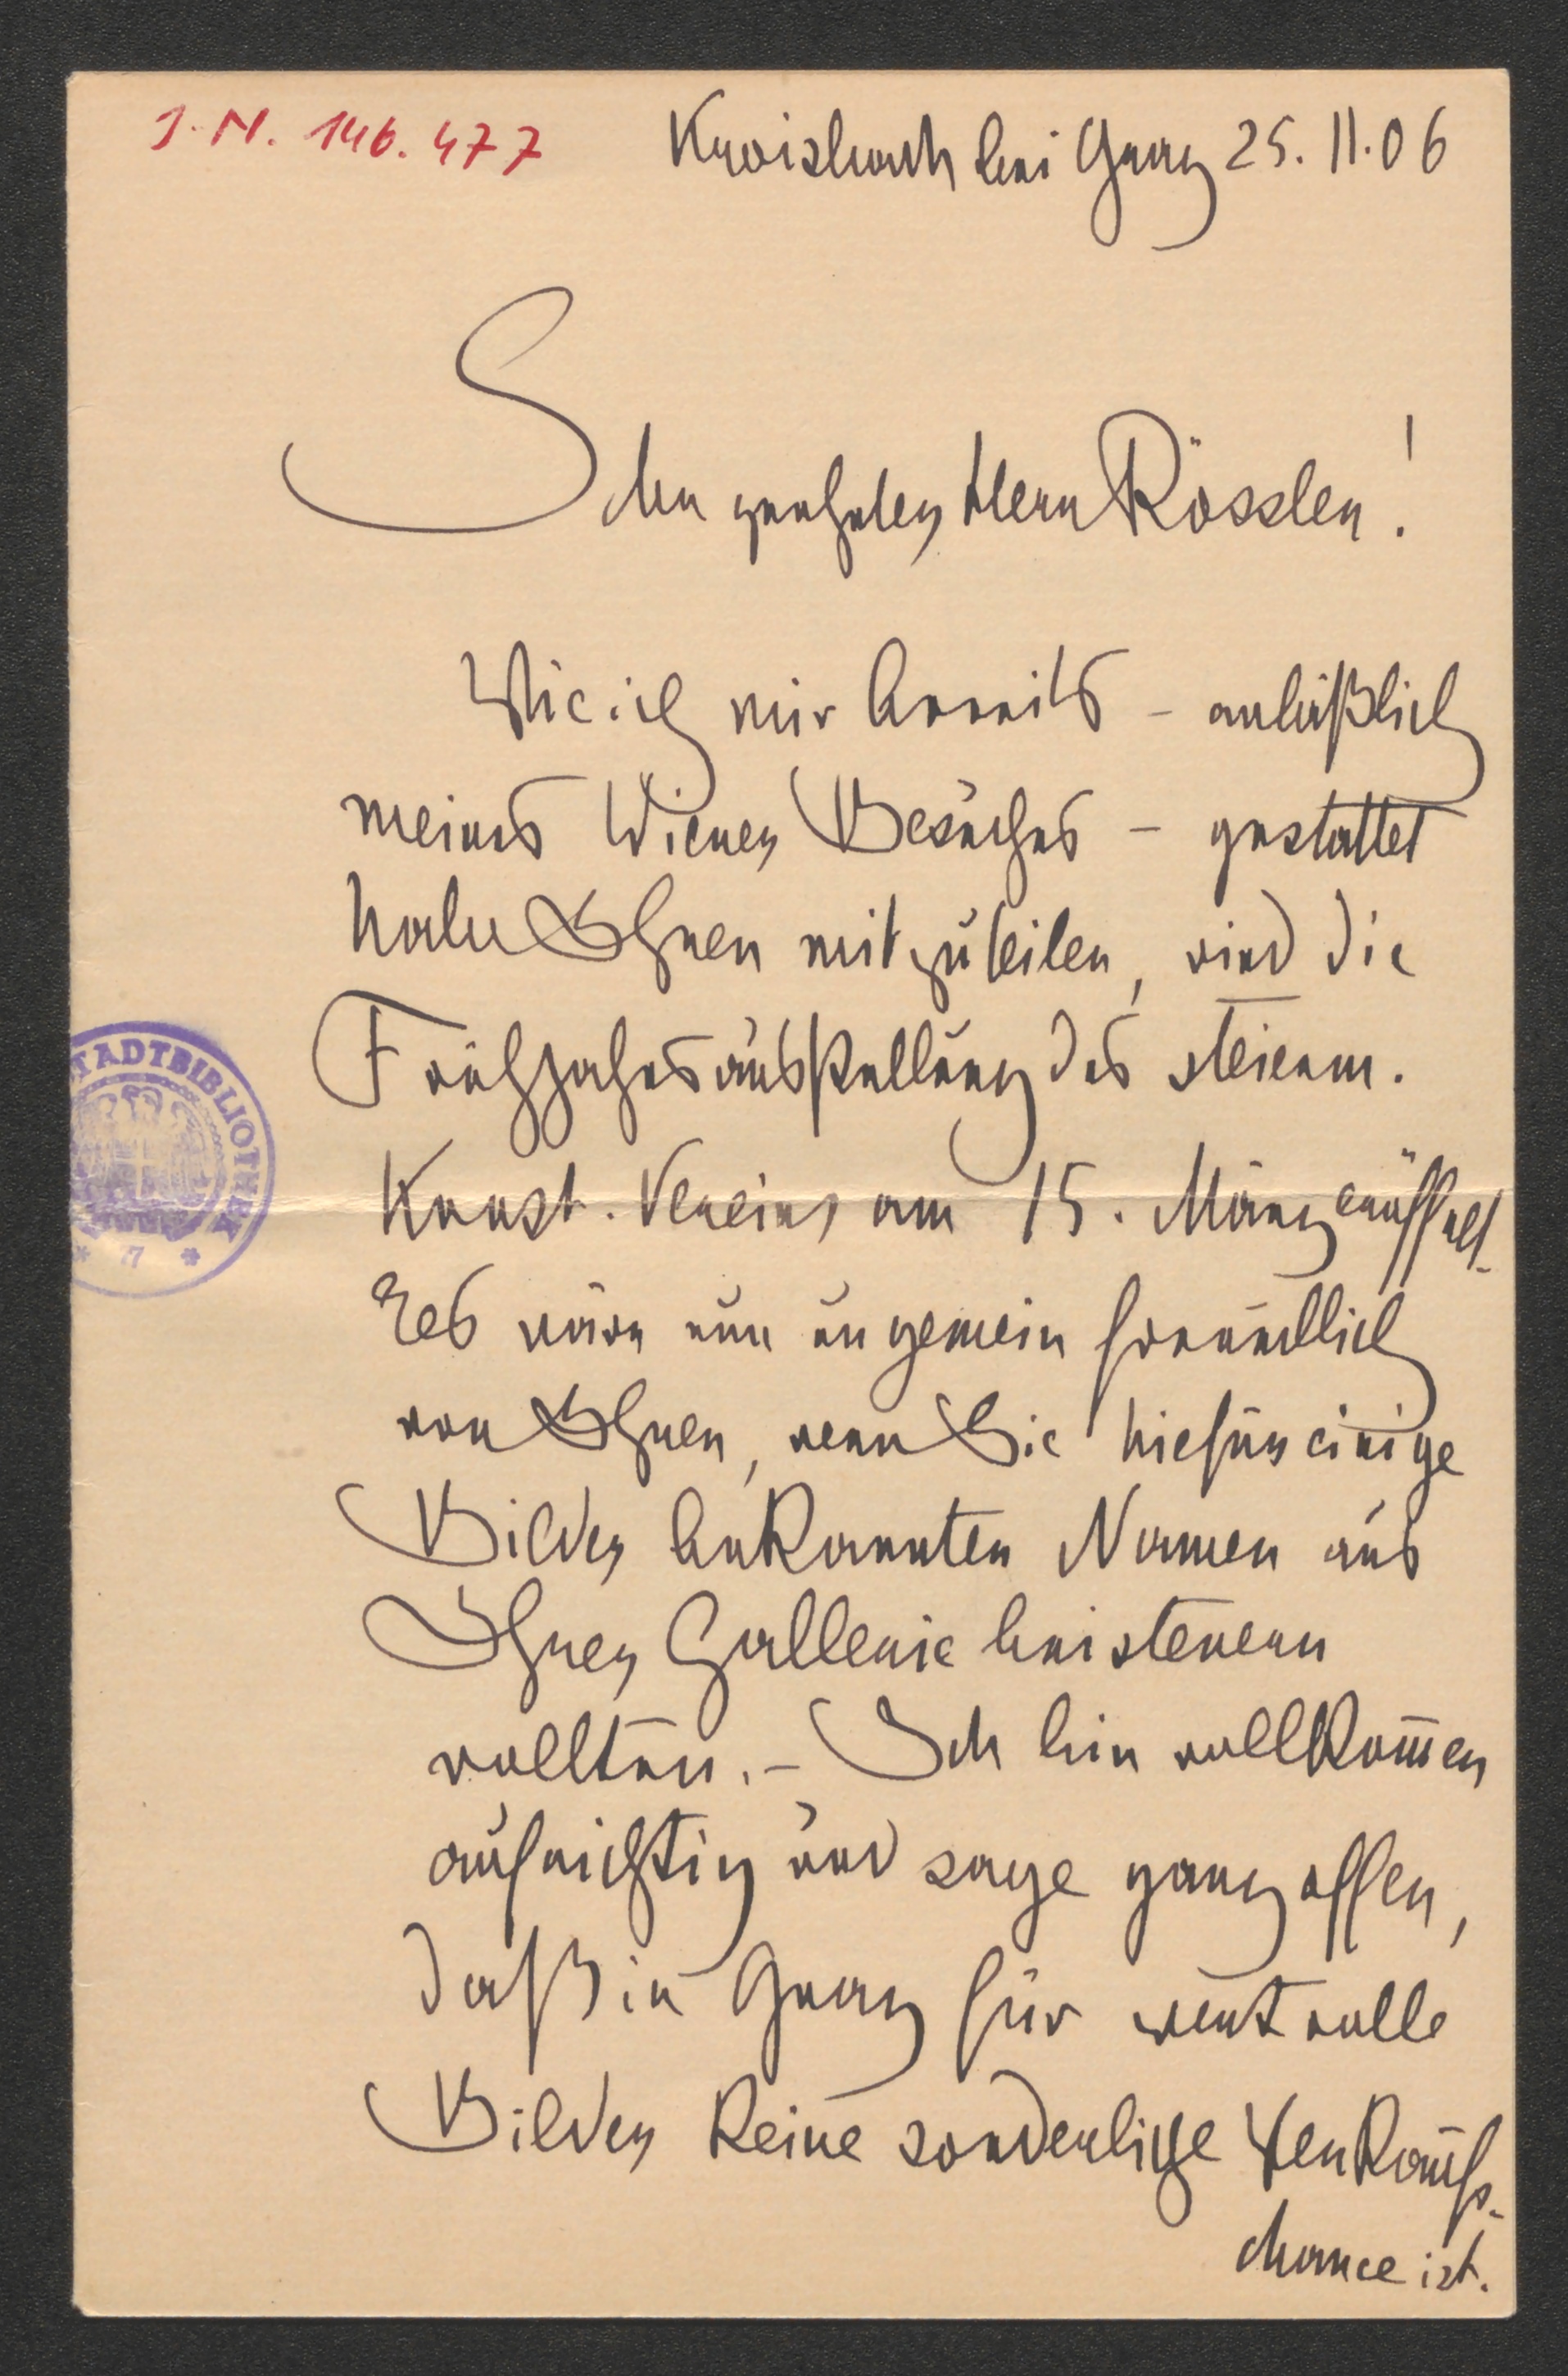 J.N. 146.477
Kroisbach bei Graz 25. II. 06
Sehr geehrter Herr Rössler!
Wie ich mir bereits – anläßlich
meines Wiener Besuches – gestattet
habe Ihnen mitzuteilen, wird die
Frühjahrsausstellung des steierm.
Kunst. Vereins am 15. März eröffnet.
Es wäre nun ungemein freundlich
von Ihnen, wenn Sie hiefür einige
Bilder bekannten Namen aus
Ihrer Gallerie beisteuern
wollten. – Ich bin vollkom̅en
aufrichtig und sage ganz offen,
daß in Graz für wertvolle
Bilder keine sonderliche Verkaufs-
chance ist.
STADTBIBLIOTHEK
* 7 *